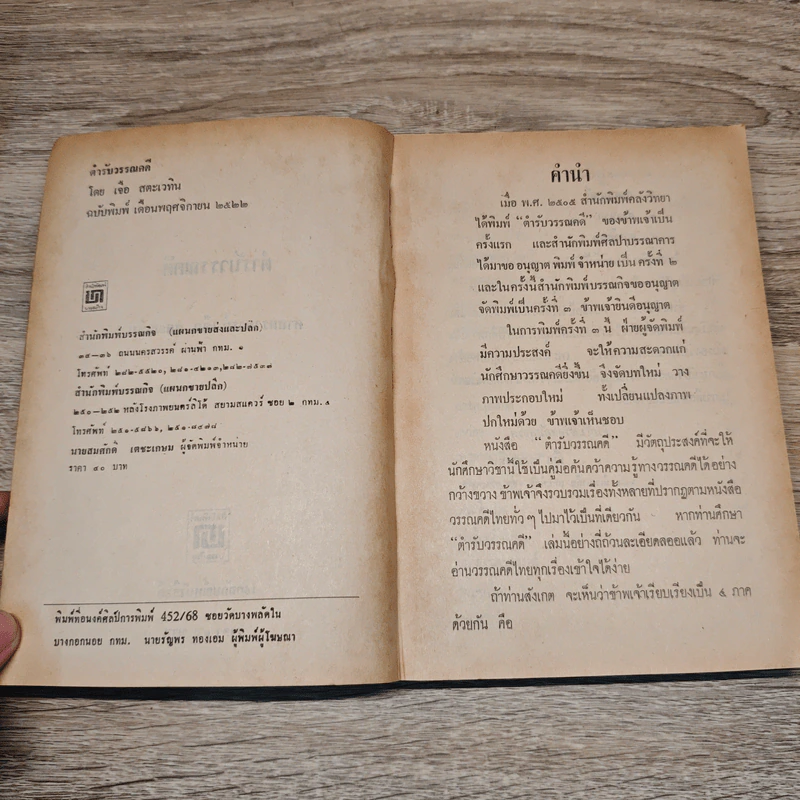 ตำรับวรรณคดี
โดย เจือ สตะเวทิน
ฉบับพิมพ์ เดือนพฤศจิกายน ๒๕๒๒
สำนักพิมพ์บรรณกิจ (แผนกขายส่งและปลีก)
๓๔—๓๖ ถนนนครสวรรค์ ผ่านฟ้า กทม. ๑
โทรศัพท์ ๒๘๒-๕๕๒๐, ๒๘๑-๔๒๑๓, ๒๘๒-๗๕๓๗
สำนักพิมพ์บรรณกิจ (แผนกขายปลีก)
๒๕๐—๒๕๒ หลังโรงภาพยนตร์ลิโด้ สยามสแควร์ ซอย ๒ กทม. ๕
โทรศัพท์ ๒๕๑-๕๘๖๖, ๒๕๑-๘๙๗๘
นายสมศักดิ์ เตชะเกษม ผู้จัดพิมพ์จำหน่าย
ราคา ๔๐ บาท
พิมพ์ที่อนงค์ศิลป์การพิมพ์ 452/68 ซอยวัดบางพลัดใน
บางกอกน้อย กทม. นายรัญพร ทองเอม ผู้พิมพ์ผู้โฆษณา
คำนำ
เมื่อ พ.ศ. ๒๕๐๕ สำนักพิมพ์คลังวิทยา
ได้พิมพ์ “ตำรับวรรณคดี” ของข้าพเจ้าเป็น
ครั้งแรก และสำนักพิมพ์ศิลปาบรรณาคาร
ได้มาขอ อนุญาต พิมพ์ จำหน่าย เป็น ครั้งที่ ๒
และในครั้งนี้สำนักพิมพ์บรรณกิจขออนุญาต
จัดพิมพ์เป็นครั้งที่ ๓ ข้าพเจ้ายินดีอนุญาต
ในการพิมพ์ครั้งที่ ๓ นี้ ฝ่ายผู้จัดพิมพ์
มีความประสงค์ จะให้ความสะดวกแก่
นักศึกษาวรรณคดียิ่งขึ้น จึงจัดบทใหม่ วาง
ภาพประกอบใหม่ ทั้งเปลี่ยนแปลงภาพ
ปกใหม่ด้วย ข้าพเจ้าเห็นชอบ
หนังสือ “ตำรับวรรณคดี” มีวัตถุประสงค์ที่จะให้
นักศึกษาวิชานี้ใช้เป็นคู่มือค้นคว้าความรู้ทางวรรณคดีได้ อย่าง
กว้างขวาง ข้าพเจ้าจึงรวบรวมเรื่องทั้งหลายที่ปรากฏตามหนังสือ
วรรณคดีไทยทั่ว ๆ ไปมาไว้เป็นที่เดียวกัน หากท่านศึกษา
“ตำรับวรรณคดี” เล่มนี้อย่างถี่ถ้วนละเอียดลออแล้ว ท่านจะ
อ่านวรรณคดีไทยทุกเรื่องเข้าใจได้ง่าย
ถ้าท่านสังเกต จะเห็นว่าข้าพเจ้าเรียบเรียงเป็น ๕ ภาค
ด้วยกัน คือ